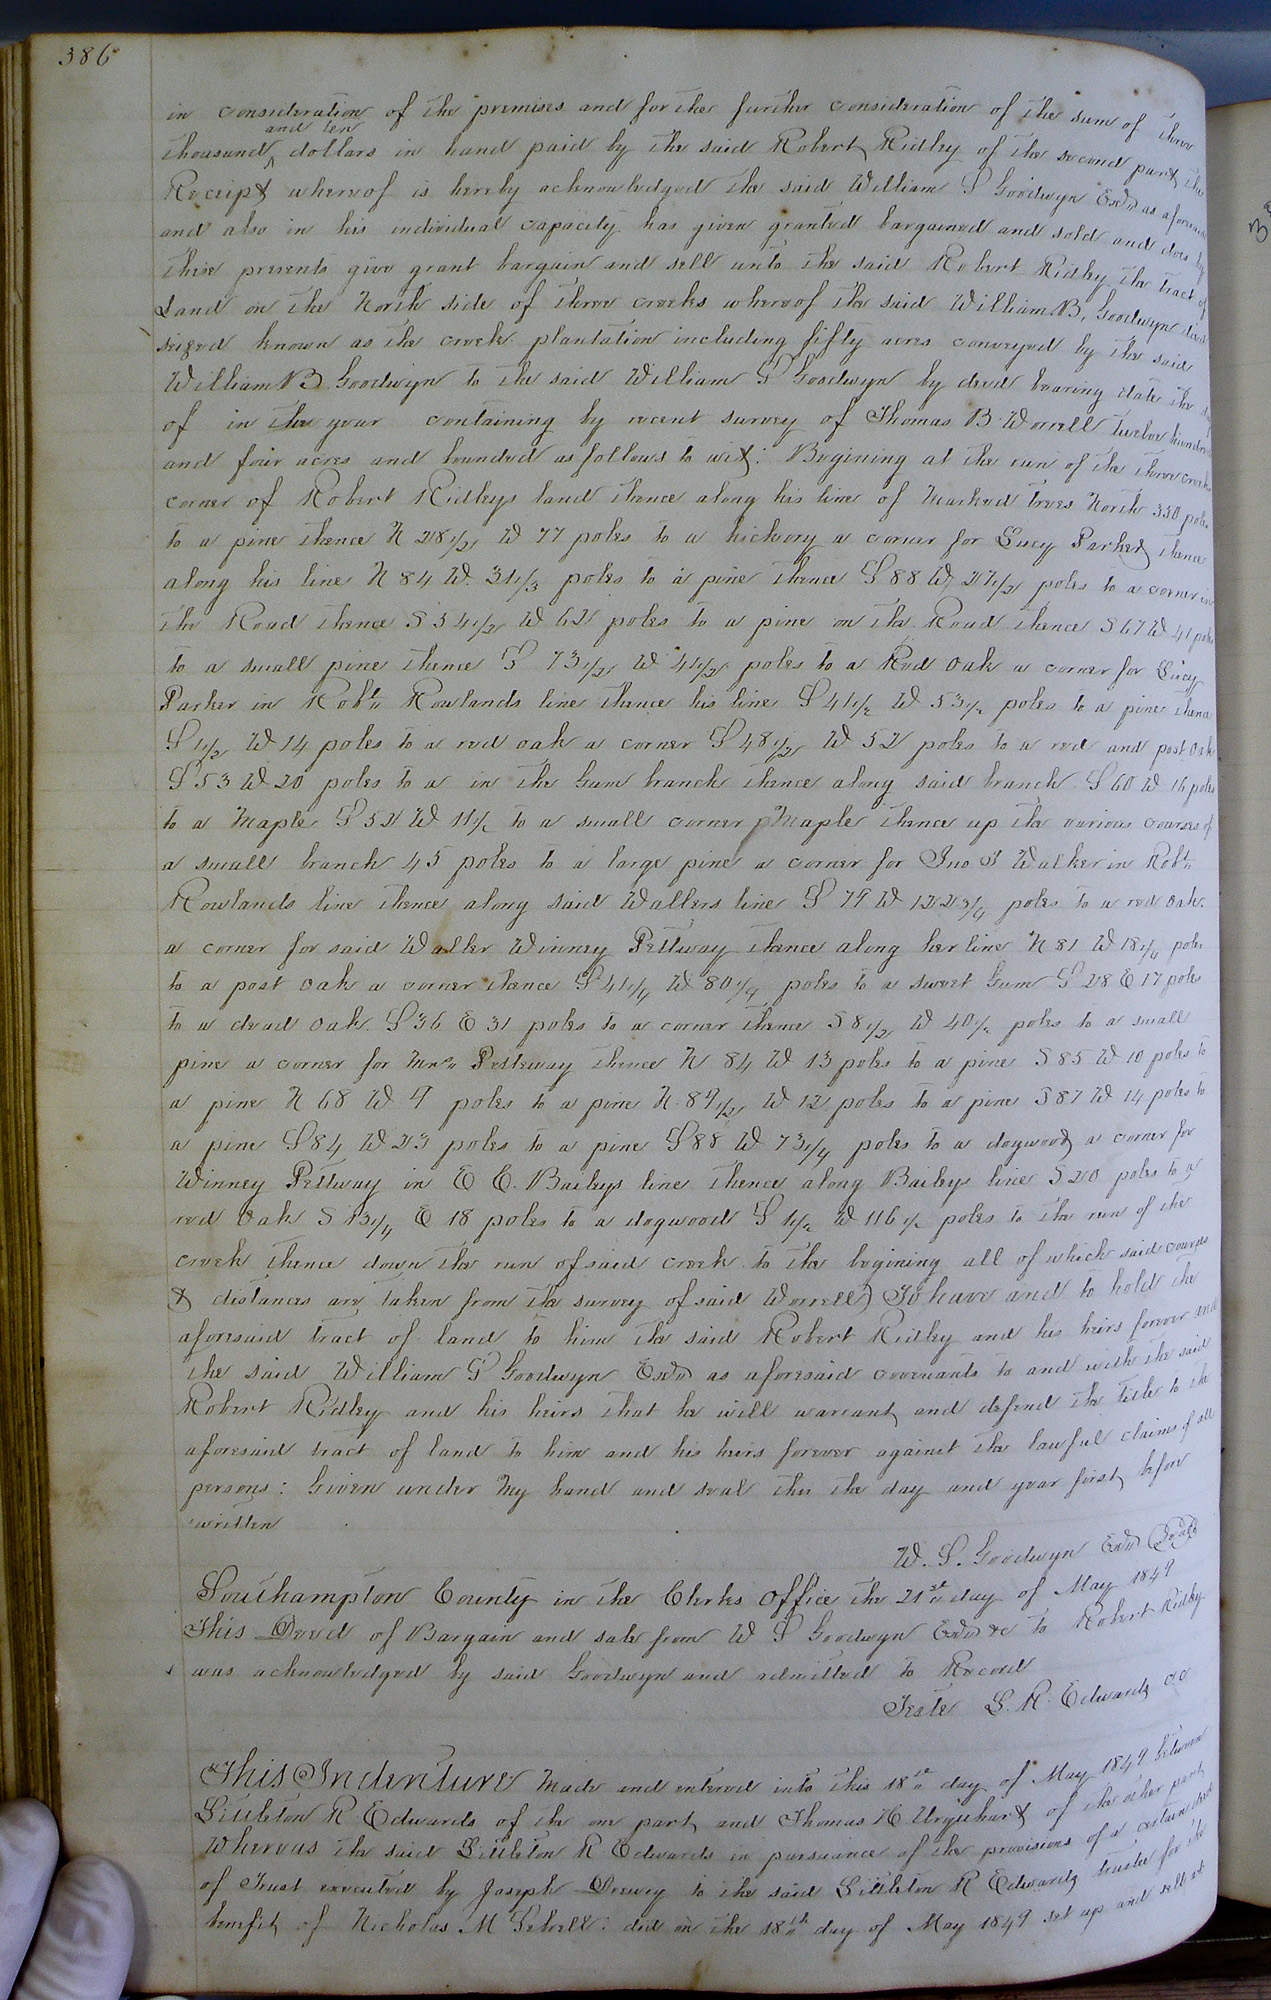 386
in consideration of the premises and for the further consideration of the sum of three
and ten
thousand ^ dollars in hand paid by the said Robert Ridley of the second part the
Receipt whereof is hereby acknowledged the said William S Goodwyn Exor as aforesaid
and also in his individual capacity has given granted bargained and sold and does by
these presents give grant bargain and sell unto the said Robert Ridley the tract of
Land on the North side of three creeks whereof the said William B. Goodwyn died
seized known as the creek plantation including fifty acres conveyed by the said
William B Goodwyn to the said William S Goodwyn by deed bearing date the day
of in the year containing by recent survey of Thomas B Worrell twelve hundred
and four acres and bounded as follows to wit: Begining at the run of the three creeks
corner of Robert Ridleys land thence along his line of Marked trees North 330 poles
to a pine thence N 28 1/2 W 77 poles to a hickory a corner for Lucy Parker thence
along his line N 84 W. 31 1/3 poles to a pine thence S 88 W 27 1/2 poles to a corner in
the Road thence S 34 1/2 W 62 poles to a pine on the Road thence S 67 W 41 poles
to a small pine thence S 73 1/2 W 41 1/2 poles to a Red Oak a corner for Lucy
Parker in Robt Rowlands line thence his line S 41 1/2 W 53 1/2 poles to a pine thence
S 1 1/2 W 14 poles to a red oak a corner S 48 1/2 W 52 poles to a red and post Oak
S 53 W 20 poles to a in the Gum branch thence along said branch S 60 W 16 poles
to a Maple S 52 W 11 1/2 to a small corner Maple thence up the various courses of
a small branch 45 poles to a large pine a corner for Jno J Walker in Robt
Rowlands line thence along said Wallers line S 79 W 122 3/4 poles to a red oak
a corner for said Waller Winney Pettway thence along her line N 81 W 18 1/4 poles
to a post oak a corner thence S 41 1/4 W 80 1/4 poles to a sweet Gum S 28 E 17 poles
to a dead oak S 36 E 31 poles to a corner thence S 8 1/2 W 40 1/2 poles to a small
pine a corner for Mrs Petteway thence N 84 W 13 poles to a pine S 85 W 10 poles to
a pine N 68 W 9 poles to a pine N 89 1/2 W 12 poles to a pine S 87 W 14 poles to
a pine S 84 W 23 poles to a pine S 88 W 73 1/4 poles to a dogwood a corner for
Winney Pettway in E E. Baileys line thence along Baileys line S 20 poles to a
red Oak S 13 1/4 E 18 poles to a dogwood S 1 1/2 W 116 1/2 poles to the run of the
creek thence down the run of said creek to the begining all of which said courses
& distances are taken from the survey of said Worrell) To have and to hold the
aforesaid tract of land to him the said Robert Ridley and his heirs forever and
the said William S Goodwyn Exor as aforesaid covenants to and with the said
Robert Ridley and his heirs that he will warrant and defend the title to the
aforesaid tract of land to him and his heirs forever against the lawful claims of all
persons: Given under My hand and seal this the day and year first before
written
W. S. Goodwyn Exor (Seal)
Southampton County in the Clerks Office the 21st day of May 1849
This Deed of Bargain and sale from W S Goodwyn Exor &c to Robert Ridley
was acknowledged by said Goodwyn and admitted to Record
Teste L. R. Edwards c.c
This Indenture Made and entered into this 18th day of May 1849 between
Littleton R Edwards of the one part and Thomas H Urquhart of the other part
Whereas the said Littleton R Edwards in pursuance of the provisions of a certain deed
of Trust executed by Joseph Drewry to the said Littleton R Edwards trustee for the
benefit of Nicholas M Sebrell: did on the 18th day of May 1849 set up and sell at